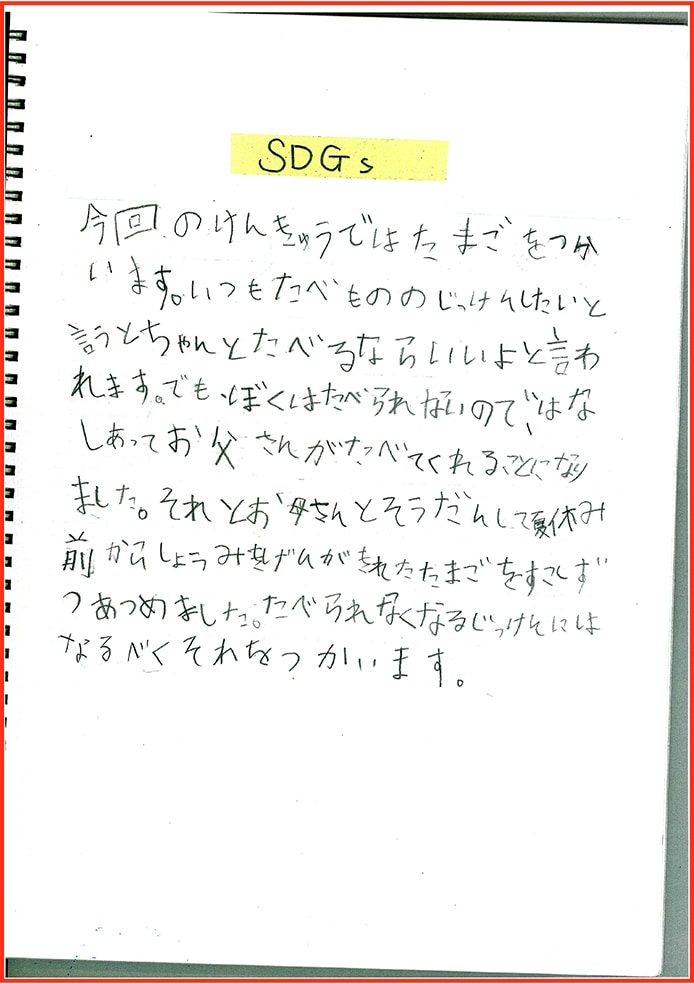 SDGs
今回のけんきゅうではたまごをつか
います。いつもたべもののじっけんしたいと
言うとちゃんとたべるならいいよと言わ
れます。でも、ぼくはたべられないので、はな
しあってお父さんがたべてくれることになり
ました。それとお母さんとそうだんして夏休み
前からしょうみきげんがきれたたまごをすこしず
つあつめました。たべられなくなるじっけんには
なるべくそれをつかいます。